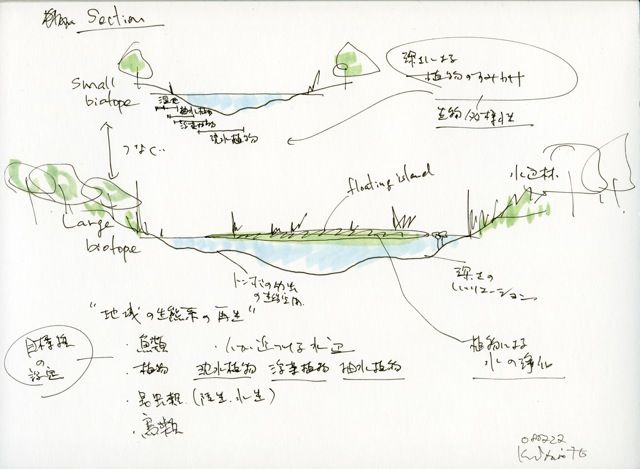 Section
Small
biotope
深さによる
植物のすみわけ
生物多様性
湿生
抽水植物
浮葉植物
沈水植物
つなぐ
水辺林
floating island
Large
biotope
トンボの幼虫
の生息空間
深さの
バリエーション
"地域の生態系の再生"
目標種
の
設定
・魚類 ・人が近づける水辺
・植物 沈水植物 浮葉植物 抽水植物
・昆虫類 (陸生・水生)
・鳥類
植物による
水の浄化
080222